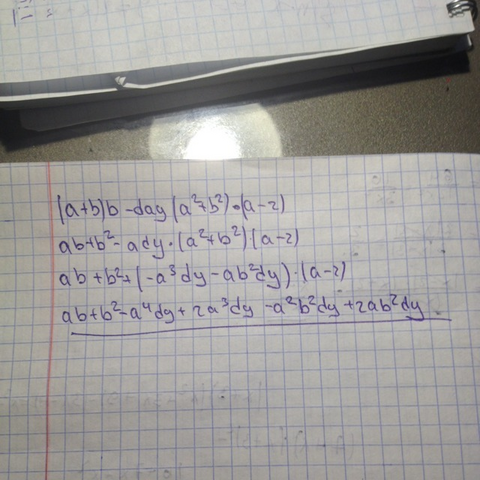 (a+b)b-day(a²+b²)•(a-2)
ab+b²-ady•(a²+b²)(a-2)
ab+b²+(-a³dy-ab²dy)•(a-2)
ab+b²-a⁴dy+2a³dy-a²b²dy+2ab²dy